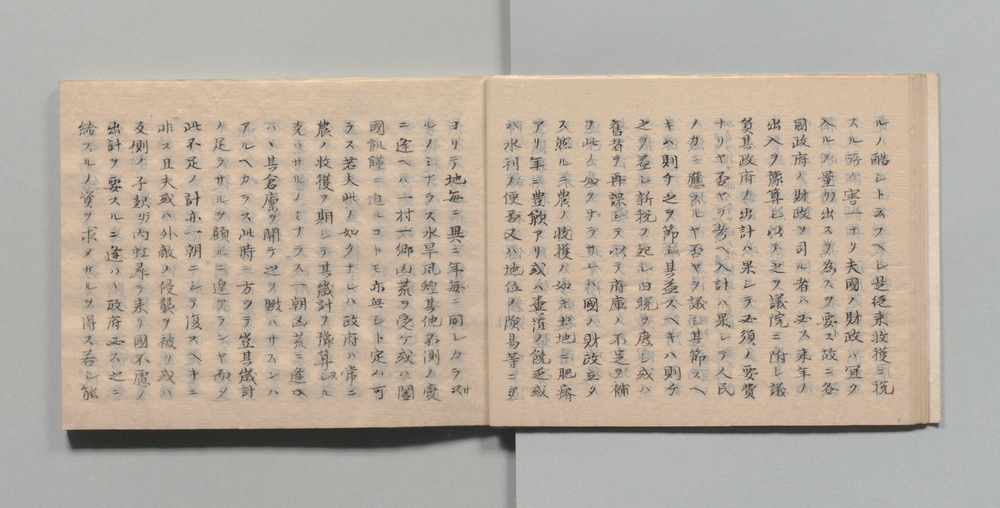 ルノ酷シト云フヘシ是従来収獲ニ税
スル所ノ害ナリ夫國ノ財政ハ宜ク
入ルヲ量リ出スヲ為スヲ要ス故ニ各
國政府ノ財政ヲ司ル者ハ必ス来年ノ
出入ヲ豫算シ以テ之ヲ議院ニ附シ議
貟其政府ノ出計ハ果シテ必須ノ要費
ナリヤ否ヤヲ考ヘ入計ハ果シテ人民
ノ力ニ應スルヤ否ヤヲ議シ其節スヘ
キハ則チ之ヲ節シ其益スヘキハ則チ
之ヲ益シ新税ヲ起シ旧税ヲ廃シ或ハ
舊者ヲ再課シ以テ府庫ノ不足ヲ補
フ此ノ如クナラサレハ國ノ財政立タ
ス然ルニ農ノ収獲ノ如キ土地ニ肥瘠
アリ年ニ豊歉アリ或ハ
ハ水利ノ便否又ハ地位ノ険易等ニヨ
ヨリテ地毎ニ異ニ年毎ニ同シカラサ
ルノミナラス水旱風蝗其他不測ノ
ニ逢ヘハ一村一郷凶荒ヲ受ケ或ハ闔
國飢饉ニ迫ルコトモ亦無シト定ム可
ラス若夫此ノ如クナレハ政府ハ常ニ
農ノ収獲ヲ期シテ其歳計ヲ豫算スル
克ハサルノミナラス一朝凶荒ニ逢ヘ
ハ其倉廩ヲ開テ之ヲ賑ハサスンハ
アルヘカラス此時ニ方ツテ豈其歳計
ノ足ラサルヲ顧ルニ遑アランヤ而メ
此不足ノ計亦一朝ニシテ復スヘキニ
非ス且夫或ハ外敵ノ侵襲ヲ被リ或ハ
反側ノ子
出計ヲ要スルニ逢ハハ政府必ス之ニ
給スルノ資ヲ求メサルヲ得ス若シ能